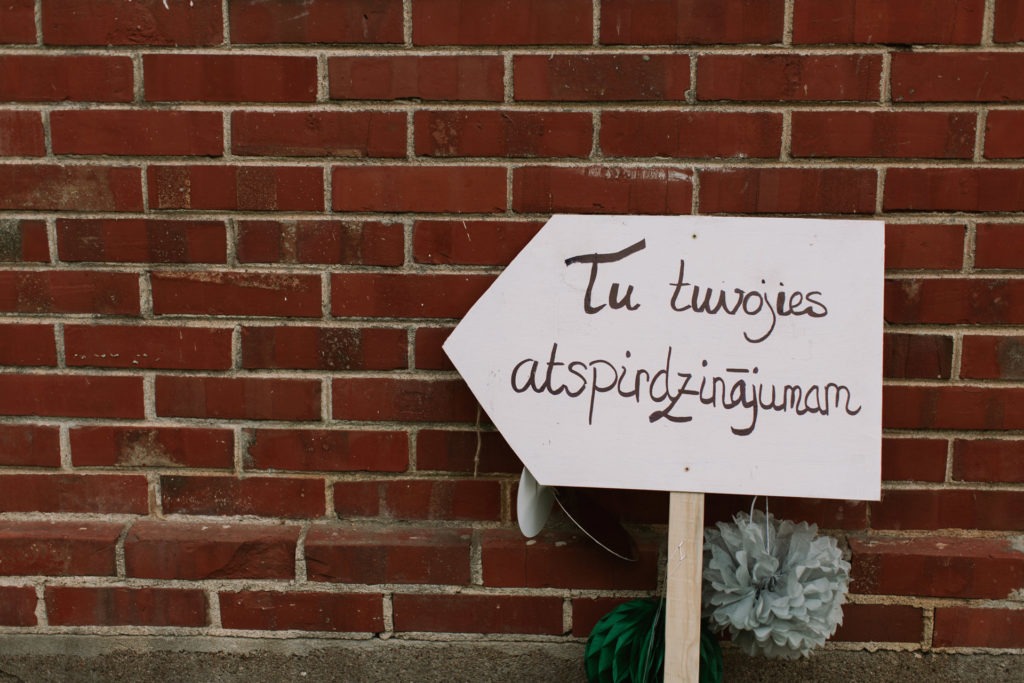 Tu tuvojies
atspirdzinājumam